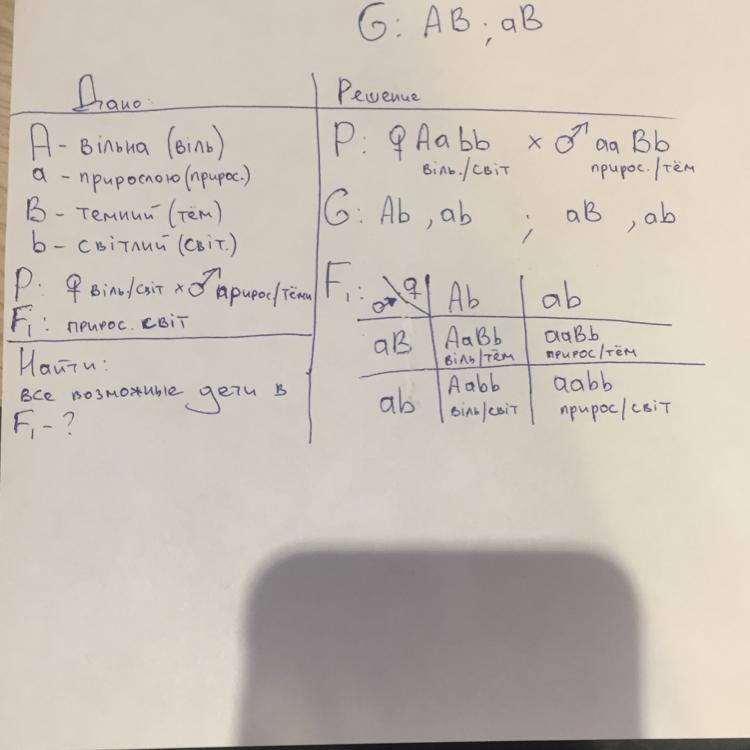 G: AB ; aB
Дано:
A - вільна (віль)
a - прирослою (прирос.)
B - темний (тём)
b - світлий (світ.)
P: ♀ віль/світ × ♂ прирос/тёмн
F₁: прирос. світ
Найти:
все возможные дети в
F₁ - ?
Решение
P: ♀ Aabb × ♂ aaBb
віль./світ прирос./тём
G: Ab , ab ; aB , ab
F₁: ♂ \ ♀ Ab ab
aB AaBb aaBb
віль/тём прирос/тём
ab Aabb aabb
віль/світ прирос/світ